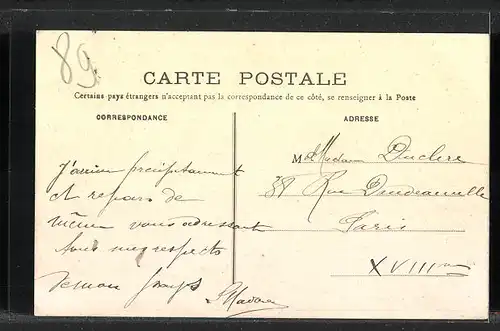 89.
CARTE POSTALE
Certains pays étrangers n'acceptant pas la correspondance de ce côté, se renseigner à la Poste
CORRESPONDANCE
ADRESSE
J'arrive précipitamment
et repars de
même vous adressant
tous mes respects
M Madame Duclere
38 Rue
Paris
XVIII